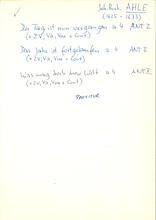 Joh. Rud. AHLE
(1625 - 1673)
Der Tag ist nun vergangen a 4 ANT 2
(+ 2V, Va, Vne + Cont)
Das Jahr ist fortgelaufen a 4 ANT 2
(+ 2V, Va, Vne + Cont)
Was mag doch diese Welt a 4 ANT 2
(+ 2V, Va, Vne + Cont)
PARTITUR